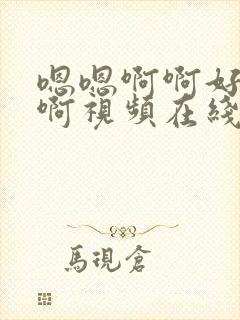 嗯嗯啊啊好
啊視頻在綫
馬現倉